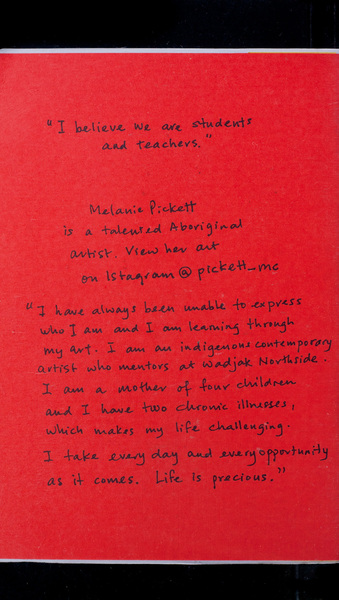 "I believe we are students
and teachers."
Melanie Pickett
is a talented Aboriginal
artist. View her art
on Istagram @ pickett_mc
"I have always been unable to express
who I am and I am learning through
my art. I am an indigenous contemporary
artist who mentors at Wadjak Northside.
I am a mother of four children
and I have two chronic illnesses,
which makes my life challenging.
I take every day and every opportunity
as it comes. Life is precious."